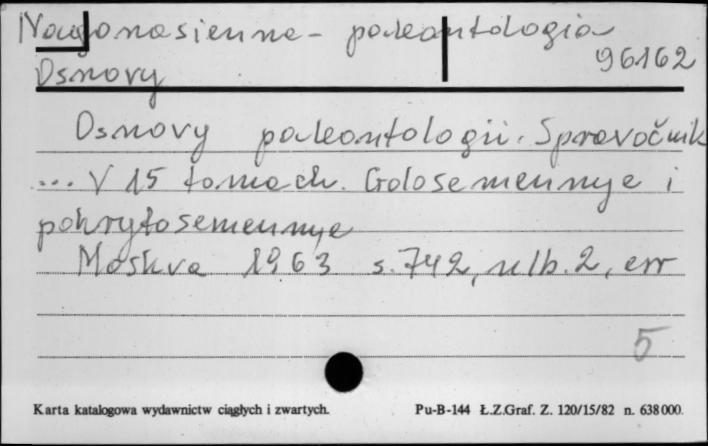 Nagonasienne - paleontologia
96162
Osnovy
Osnovy paleontologii. Spravočnik
... V 15 tomach. Golosemennye i
pokrytosemennye
Moskva 1963 s. 742, nlb. 2, err
5
Karta katalogowa wydawnictw ciągłych i zwartych. Pu-B-144 Ł.Z.Graf. Z. 120/15/82 n. 638000.